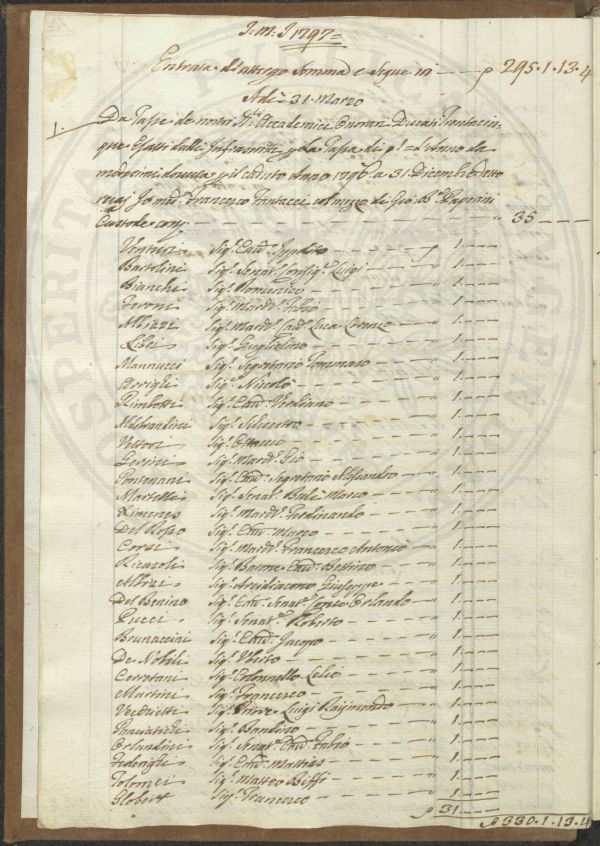 J. M. J. 1797=
Entrata di attergo Somma e Segue in — — ρ 295.1.13.4
A di 31 Marzo
1. Da Tasse de nostri Accademici Onorari Ducati Trentacin-
que Esatti dalli Infrascritti p la Tassa di p.1 L'Anno da
medesimi dovuta p il caduto Anno 1796 a 31 Dicembre detto
Francesco Fantacci col mezzo di Gio Papini
Custode — " 35 — — —
Venturi Sig.r Cav.r Ippolito — ρ 1 — —
Bartolini Sig.r Senat.r Luigi — " 1 — —
Bianchi Sig.r Domenico — " 1 — —
Feroni Sig.r March.e Fabio — " 1 — —
Albizzi Sig.r March.e Cav.r Luca — " 1 — —
Libri Sig.r Guglielmo — " 1 — —
Mannucci Sig.r Segretario Tommaso — " 1 — —
Sig.r Niccolò — " 1 — —
Rimbotti Sig.r Cav.r — " 1 — —
Aldobrandini Sig.r Silvestro — " 1 — —
Vettori Sig.r — " 1 — —
Gerini Sig.r March.e Gio — " 1 — —
Pontenani Sig.r Cav.r Segretario Alessandro — " 1 — —
Martelli Sig.r Senat.r Balì Marco — " 1 — —
Ximenes Sig.r March.e Ferdinando — " 1 — —
Del Rosso Sig.r Cav.r — " 1 — —
Corsi Sig.r March.e Francesco Antonio — " 1 — —
Ricasoli Sig.r Barone Cav.r Bettino — " 1 — —
Albizi Sig.r Arcidiacono Giuseppe — " 1 — —
Del Benino Sig.r Cav.r Senat.e Orlando — " 1 — —
Pucci Sig.r Senat.e Roberto — " 1 — —
Brunaccini Sig.r Cav.r Jacopo — " 1 — —
De Nobili Sig.r Uberto — " 1 — —
Cerretani Sig.r Colonnello Lelio — " 1 — —
Martini Sig.r Francesco — " 1 — —
Sig.r Priore Luigi Raimondo — " 1 — —
Panciatichi Sig.r Bandino — " 1 — —
Orlandini Sig.r Senat.e Cav.r Fabio — " 1 — —
Federighi Sig.r Cav.r Mattias — " 1 — —
Tolomei Sig.r Matteo Biffi — " 1 — —
Globert Sig.r Francesco — " 1 — —
ρ 31 — —
ρ 330.1.13.4